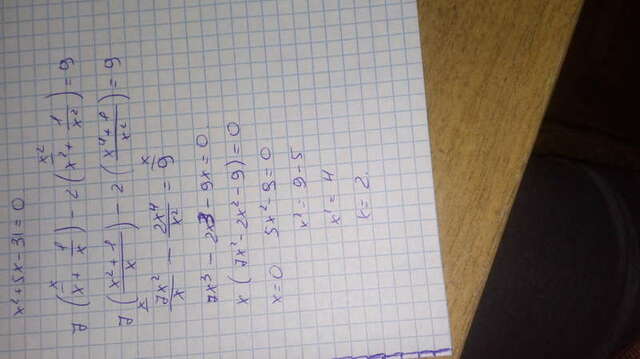 x² + 5x - 31 = 0
7 (x + 1/x) - 2 (x² + 1/x²) = 9
7 ((x² + 1)/x) - 2 ((x⁴ + 1)/x²) = 9
7x²/x - 2x⁴/x² = 9
7x³ - 2x3 - 9x = 0
x (7x² - 2x² - 9) = 0
x = 0 5x² - 9 = 0
x² = 9 - 5
x² = 4
x = 2.